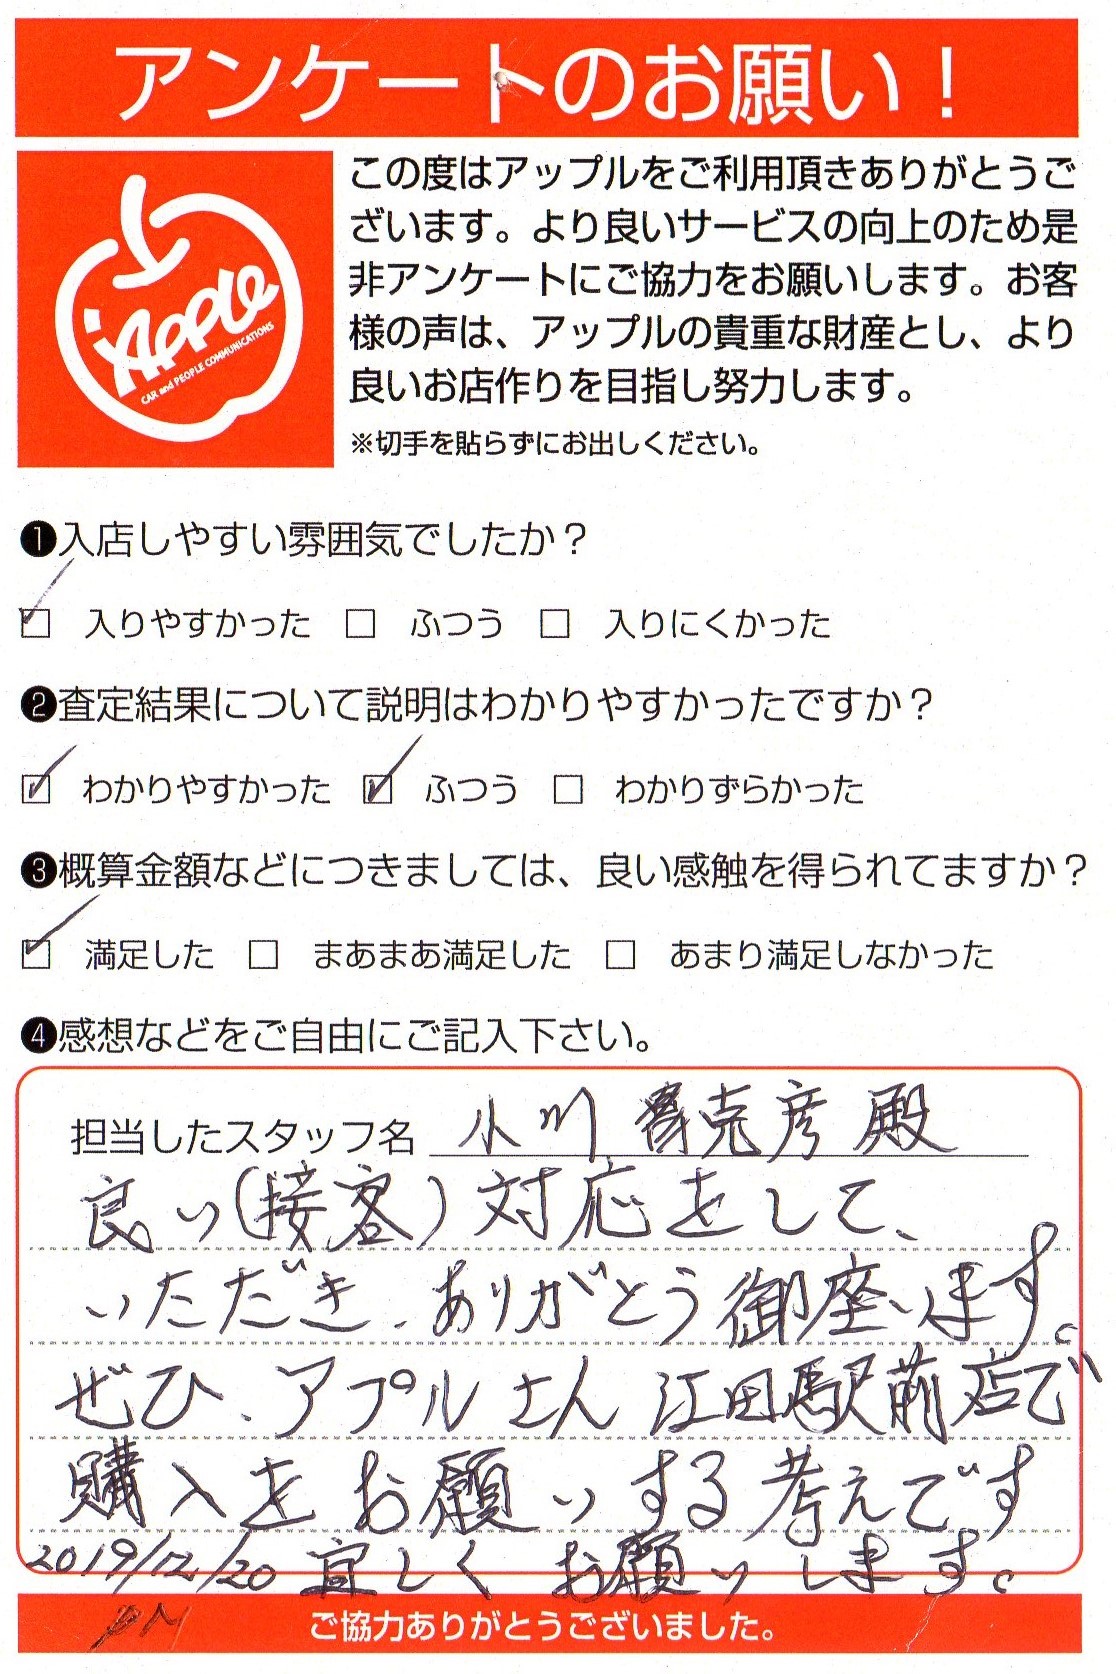 アンケートのお願い！
この度はアップルをご利用頂きありがとうご
ざいます。より良いサービスの向上のため是
非アンケートにご協力をお願いします。お客
様の声は、アップルの貴重な財産とし、より
良いお店作りを目指し努力します。
※切手を貼らずにお出しください。
APPLE
CAR and PEOPLE COMMUNICATIONS
❶入店しやすい雰囲気でしたか？
☑ 入りやすかった □ ふつう □ 入りにくかった
❷査定結果について説明はわかりやすかったですか？
☑ わかりやすかった ☑ ふつう □ わかりずらかった
❸概算金額などにつきましては、良い感触を得られてますか？
☑ 満足した □ まあまあ満足した □ あまり満足しなかった
❹感想などをご自由にご記入下さい。
担当したスタッフ名 小川 克彦 殿
良い(接客)対応をして、
いただき、ありがとう御座います。
ぜひ、アプルさん江田駅前店で
購入をお願いする考えです
2019/12/20 宜しくお願いします。
PM
ご協力ありがとうございました。